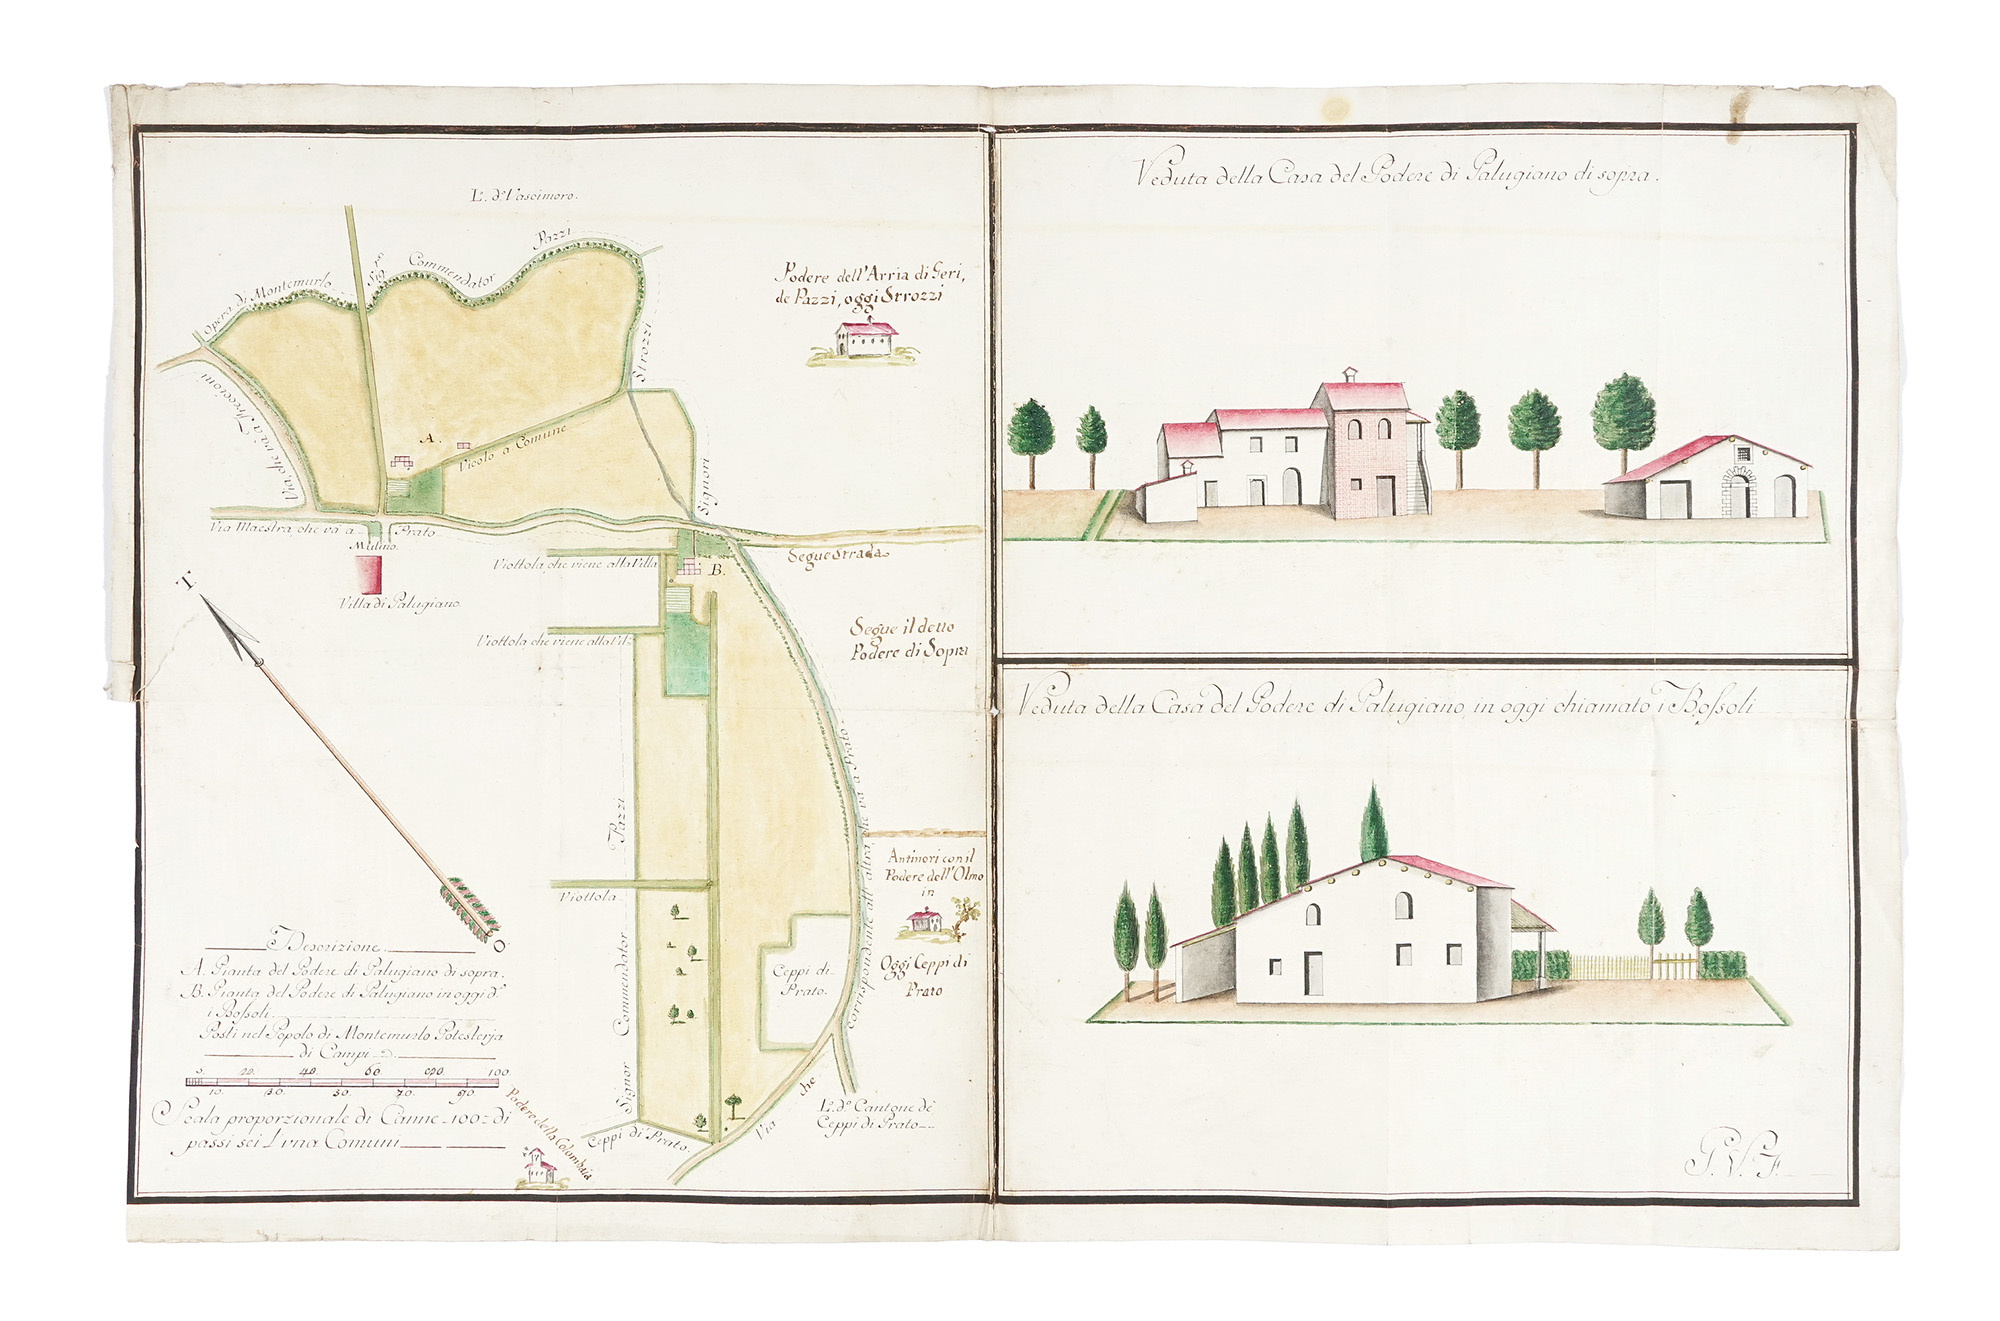 L. d.º Vascimoro.
Opera di Montemurlo
Sig.re
Commendator
Pazzi
Strozzi
Signori
Podere dell'Arria di Geri,
de Pazzi, oggi Strozzi
Via, che va a Treccioni
A.
Vicolo a Comune
Via Maestra, che va a Prato
Mulino.
Villa di Palugiano.
Segue Strada
Viottola, che viene alla Villa
B.
Viottola che viene alla Vil:
Segue il detto
Podere di Sopra
T.
O
Pazzi
Commendator
Signor
Viottola
Ceppi di
Prato.
Via che Corrispondente all'altra, che va a Prato.
Antinori con il
Podere dell'Olmo
in
Oggi Ceppi di
Prato
L. d.º Cantone de
Ceppi di Prato
Ceppi di Prato.
Podere della Colombaia
Descrizione
A. Pianta del Podere di Palugiano di sopra.
B. Pianta del Podere di Palugiano in oggi d.º
i Bossoli.
Posti nel Popolo di Montemurlo Potesterja
di Campi
5. 20. 40. 60. 80. 100.
10. 30. 50. 70. 90.
Scala proporzionale di Canne 100 = di
passi sei l'una Comuni
Veduta della Casa del Podere di Palugiano di sopra.
Veduta della Casa del Podere di Palugiano, in oggi chiamato i Bossoli
P. V. F.